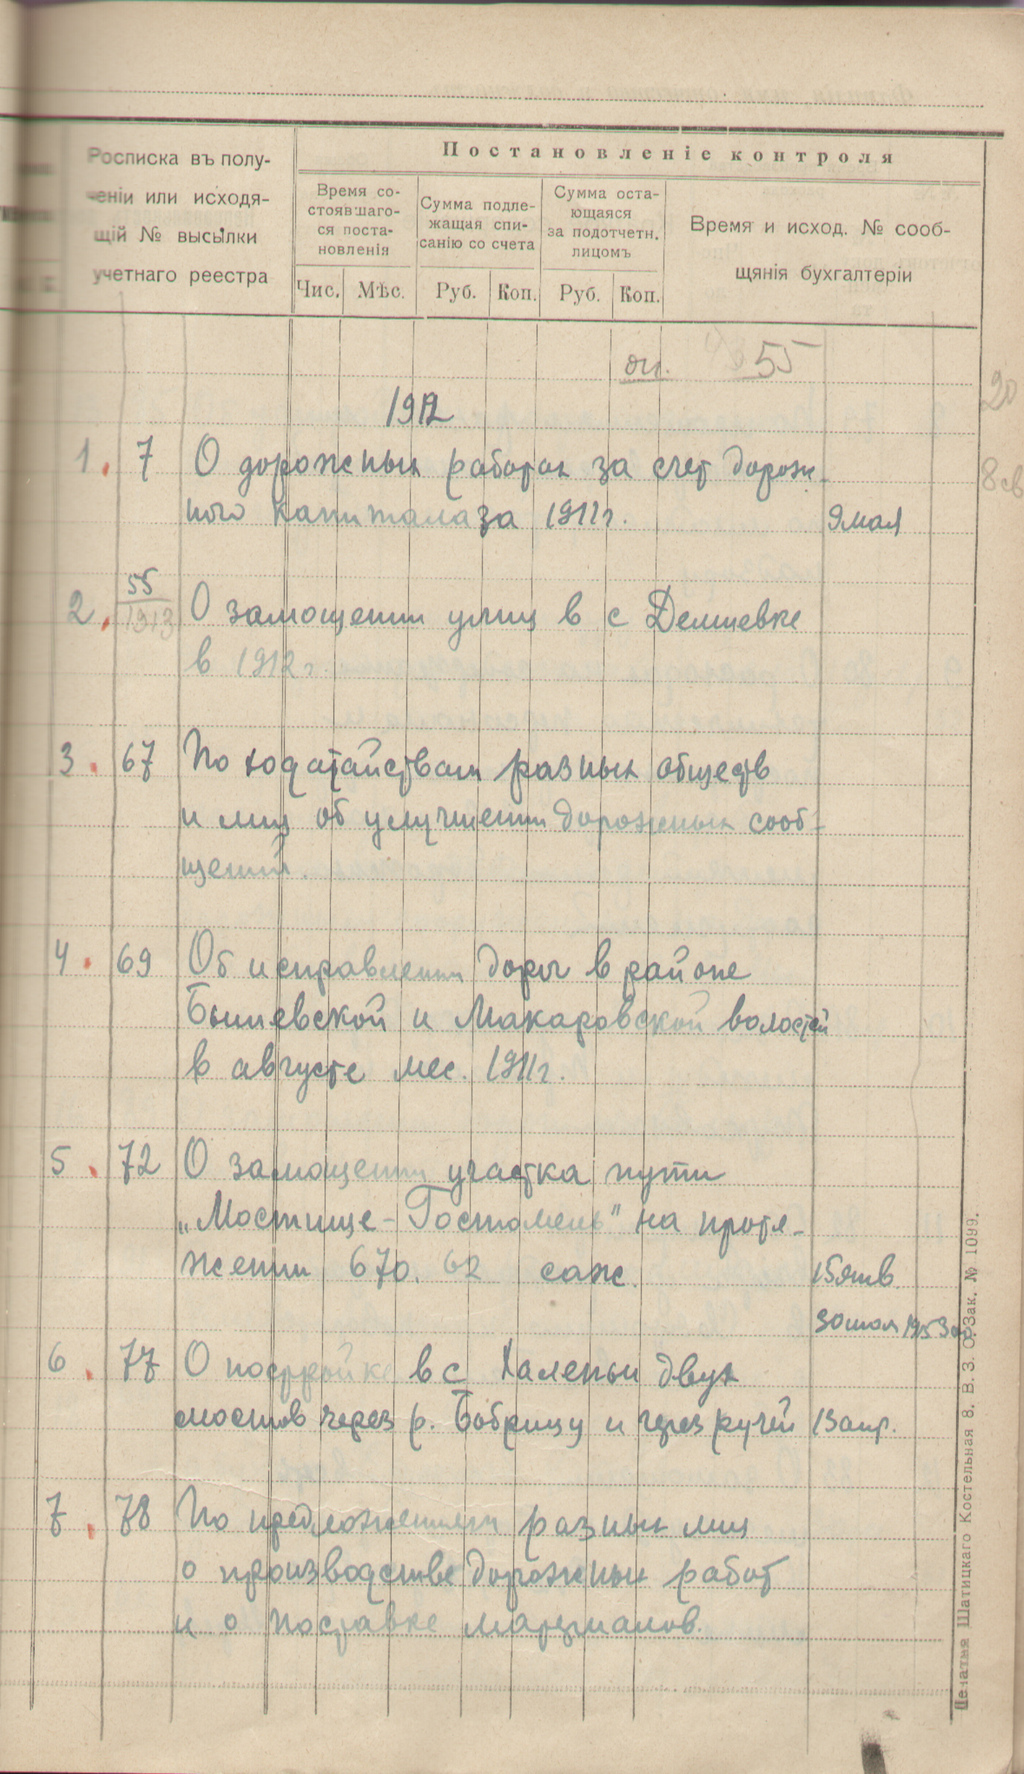 Постановленіе контроля
Росписка въ полу-
ченіи или исходя-
щій № высылки
учетнаго реестра
Время со-
стоявшаго-
ся поста-
новленія
Сумма подле-
жащая спи-
санію со счета
Сумма оста-
ющаяся
за подотчетн.
лицомъ
Время и исход. № сооб-
щянія бухгалтеріи
Чис. Мѣс. Руб. Коп. Руб. Коп.
оп. 55
1912
20
1. 7 О дорожных работах за счет дорож-
ного капитала за 1911 г. 9 мая
2. 55/1913 О замощении улиц в с Демиевке
в 1912 г.
3. 67 По ходатайствам разных обществ
и лиц об улучшении дорожных сооб-
щений.
4. 69 Об исправлении дорог в районе
Бышевской и Макаровской волостей
в августе мес. 1911 г.
5. 72 О замощении участка пути
„Мостище-Гостомель" на протя-
жении 670.62 саж. 15 янв.
6. 77 О постройке в с Халепьи двух
мостов через р. Бобрицу и через ручей 13 апр.
7. 78 По предложениям разных лиц
о производстве дорожных работ
и о поставке материалов.
Печатня Шатицкаго Костельная 8. В. З. О. Зак. № 1099.